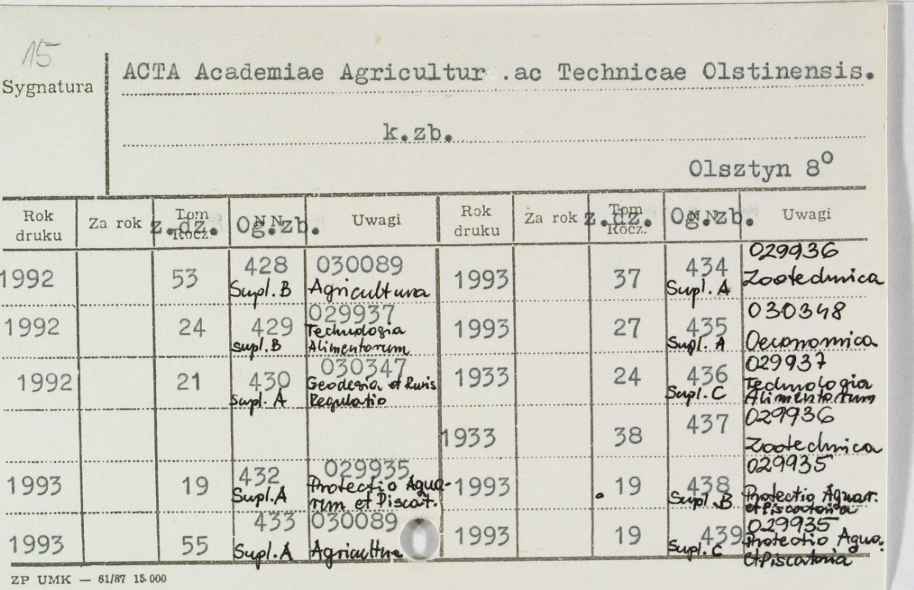 15
Sygnatura
ACTA Academiae Agricultur .ac Technicae Olstinensis.
k.zb.
Olsztyn 8°
Rok druku Za rok Tom Rocz. z.dz. N N Og.zb. Uwagi Rok druku Za rok Tom Rocz. z.dz. N N Og.zb. Uwagi
1992 53 428 Supl. B 030089 Agricultura 1993 37 434 Supl. A 029936 Zootechnica
1992 24 429 supl. B 029937 Technologia Alimentorum 1993 27 435 Supl. A 030348 Oeconomica
1992 21 430 Supl. A 030347 Geodesia et Ruris Regulatio 1933 24 436 Supl. C 029937 Technologia Alimentorum
1933 38 437 029936 Zootechnica
1993 19 432 Supl. A 029935 Protectio Aqua-rum et Piscat. 1993 . 19 438 Supl. B 029935 Protectio Aquar. et Piscatoria
1993 55 433 Supl. A 030089 Agricultura 1993 19 439 Supl. C 029935 Protectio Aqua. et Piscatoria
ZP UMK — 61/87 15 000